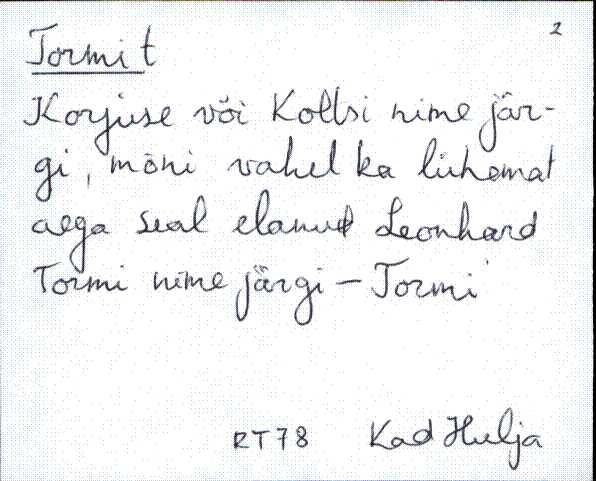 2
Tormit
Korjuse või Koltsi nime jär-
gi, mõni vahel ka lühemat
aega seal elanud Leonhard
Tormi nime järgi – Tormi
RT78 Kad Hulja